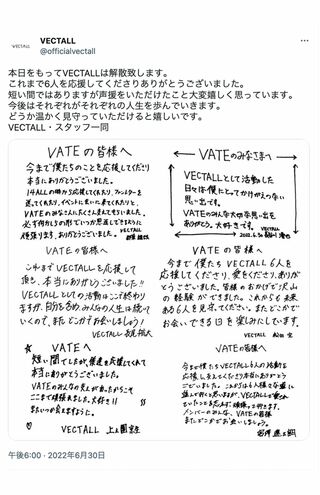 VECTALL
VECTALL
@officialvectall
本日をもってVECTALLは解散致します。
これまで6人を応援してくださりありがとうございました。
短い間ではありますが声援をいただけたこと大変嬉しく思っています。
今後はそれぞれがそれぞれの人生を歩んでいきます。
どうか温かく見守っていただけると嬉しいです。
VECTALL・スタッフ一同
VATEの皆様へ
今まで僕たちのことを応援してくださり
本当にありがとうございました。
VATEのみなさんたくさん
VECTALL
VATEのみなさまへ
VECTALLとして活動した
日々は僕にとってかけがえない
思い出です。
VATEのみんな大切な思い出を
ありがとう。大好きです。
VECTALL
VATEの皆様へ
これまでVECTALLを応援して
頂き、本当にありがとうございました!!
VECTALLとしての活動はここで終わり
ますが、自分も含め、みんなの人生は続いて
いくので、またどこかでお会いしましょう!
VECTALL
VATEの皆様へ
今まで僕たちVECTALL6人を
応援してくださり、愛をくださり、ありが
とうございました。皆様のおかげで沢山
の経験ができました。これからも未来
ある6人を見守ってください。またどこかで
お会いできる日を楽しみにしています。
VECTALL
VATEへ
短い間でしたが、僕達を応援してくれて
本当にありがとうございました。
VATEのみんなの支えがあったからこそ
ここまで頑張れました。大好き!!
またいつか会えますように。
VECTALL
VATEの皆様へ
今まで僕たちVECTALL6人の活動を
メンバーのみんな、VATEの皆様
またどこかでお会いしましょう。
午後6:00 · 2022年6月30日